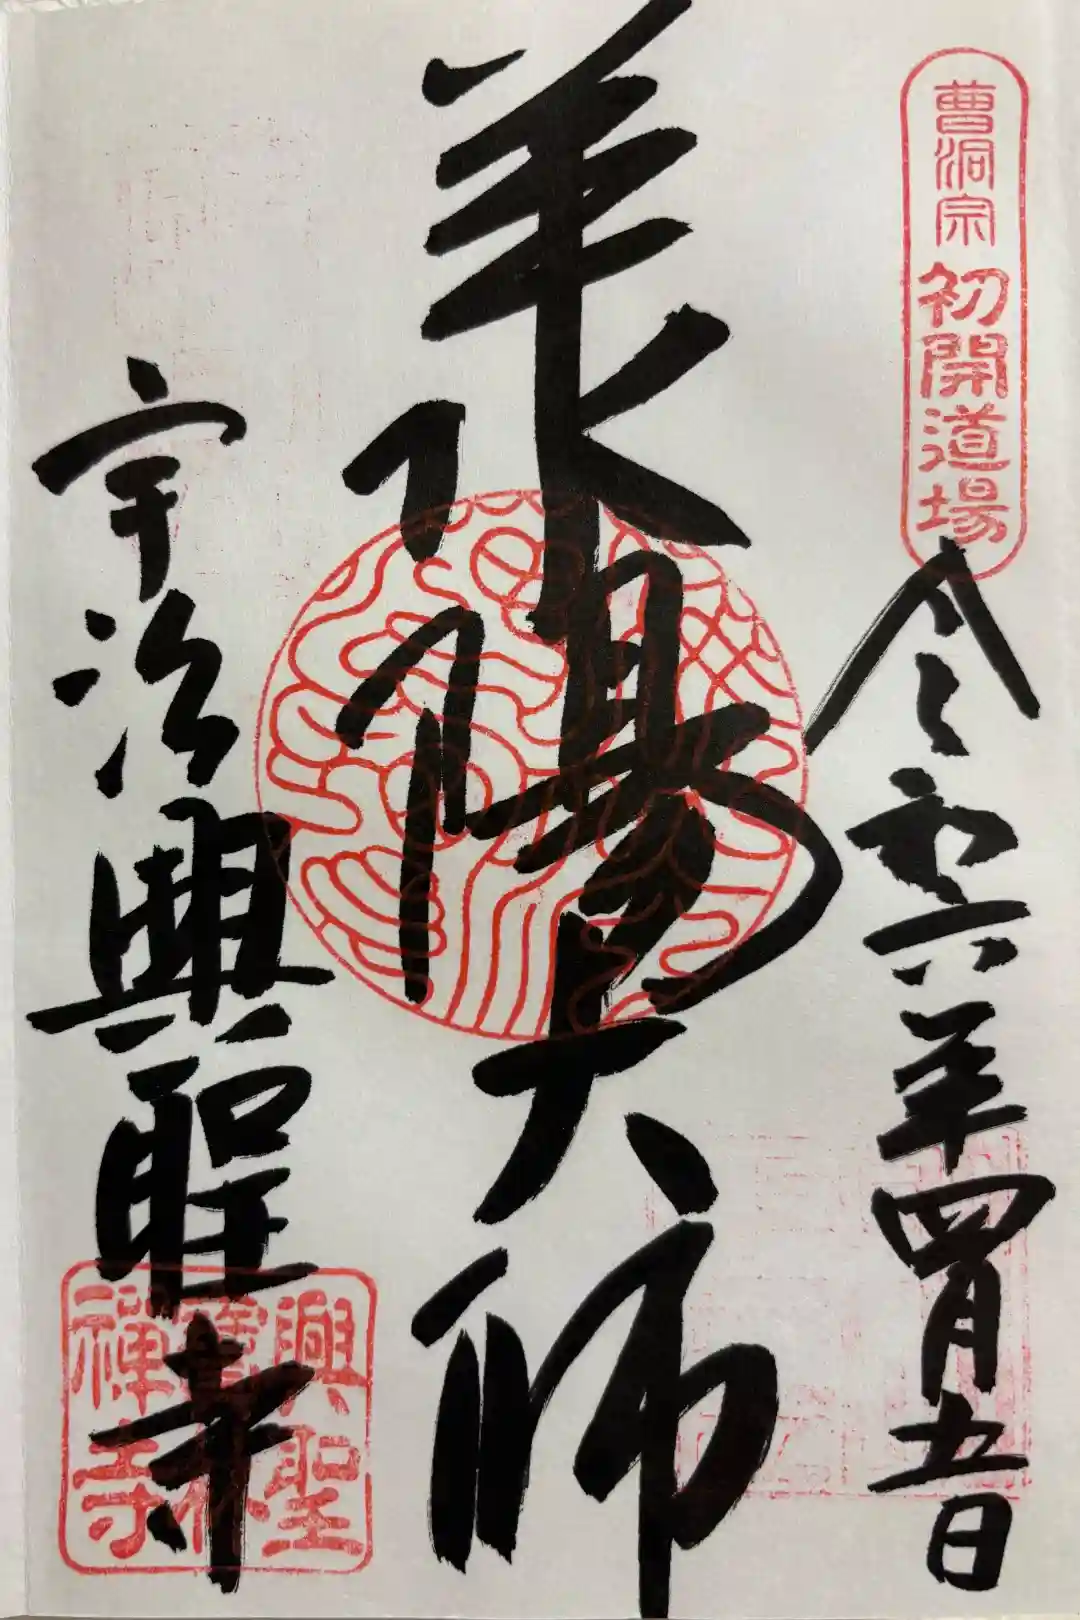 曹洞宗初開道場
令和六年四月五日
承陽大師
宇治興聖寺
興聖
寶林
禪寺